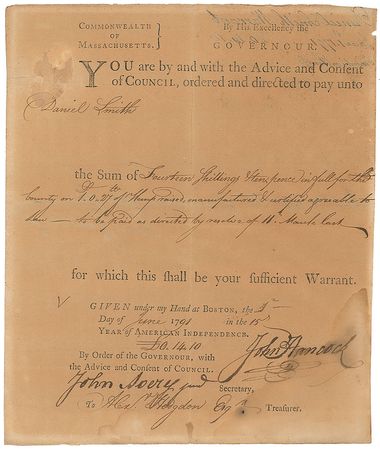 COMMONWEALTH OF
MASSACHUSETTS.
By His Excellency the
GOVERNOUR.
YOU are by and with the Advice and Consent
of COUNCIL, ordered and directed to pay unto
Daniel Smith
the Sum of Fourteen Shillings & ten pence in full for the
bounty on of Hemp raised, manufactured & certified agreable to
law — to be paid as directed by resolve of 11th March last
for which this shall be your sufficient Warrant.
GIVEN under my Hand at BOSTON, the
Day of June 1791 in the 15th
YEAR of AMERICAN INDEPENDENCE.
£0.14.10
John Hancock
By Order of the GOVERNOUR, with
the Advice and Consent of COUNCIL.
John Avery jun Secretary,
To Alex Hodgdon Esqr Treasurer.